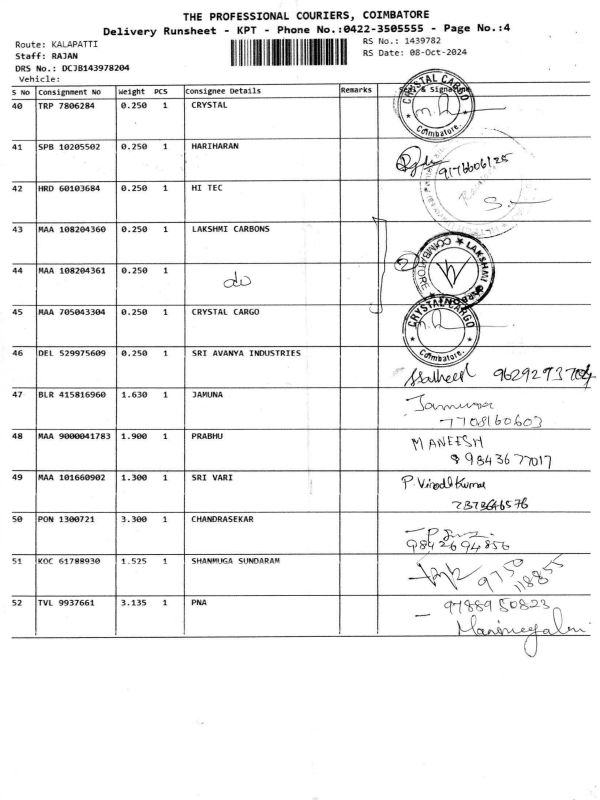 THE PROFESSIONAL COURIERS, COIMBATORE
Delivery Runsheet - KPT - Phone No.:0422-3505555 - Page No.:4
Route: KALAPATTI
RS No.: 1439782
Staff: RAJAN
RS Date: 08-Oct-2024
DRS No.: DCJB143978204
Vehicle:
S No Consignment No Weight PCS Consignee Details Remarks Seal & Signature
40 TRP 7806284 0.250 1 CRYSTAL
CRYSTAL CARGO
Coimbatore.
41 SPB 10205502 0.250 1 HARIHARAN
9176606125
42 HRD 60103684 0.250 1 HI TEC
43 MAA 108204360 0.250 1 LAKSHMI CARBONS
LAKSHMI CARBONS
COIMBATORE
44 MAA 108204361 0.250 1 do
45 MAA 705043304 0.250 1 CRYSTAL CARGO
CRYSTAL CARGO
Coimbatore.
46 DEL 529975609 0.250 1 SRI AVANYA INDUSTRIES
47 BLR 415816960 1.630 1 JAMUNA
Jamuna
7708160603
48 MAA 9000041783 1.900 1 PRABHU
MANEESH
9843677017
49 MAA 101660902 1.300 1 SRI VARI
P. Vinodkumar
50 PON 1300721 3.300 1 CHANDRASEKAR
9842694856
51 KOC 61788930 1.525 1 SHANMUGA SUNDARAM
9750
118855
52 TVL 9937661 3.135 1 PNA
9788950823